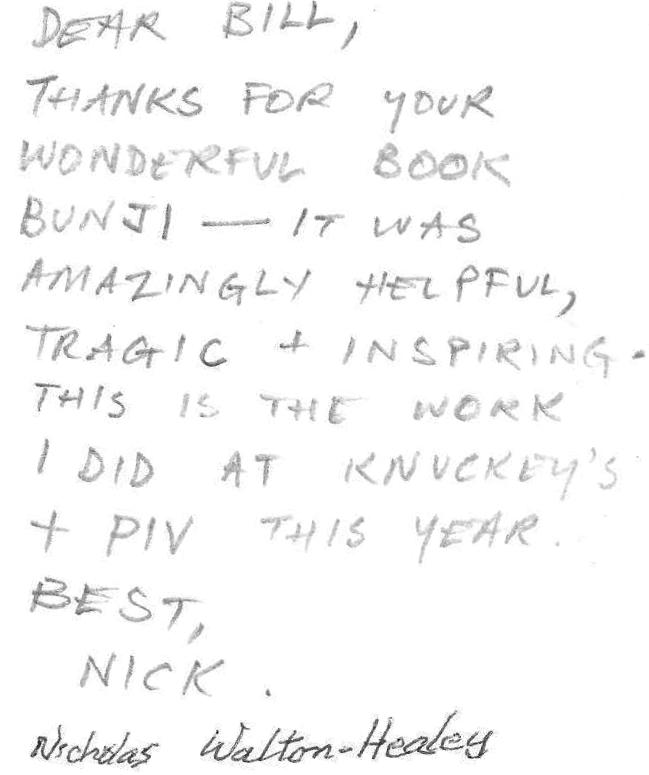 DEAR BILL,
THANKS FOR YOUR
WONDERFUL BOOK
BUNJI — IT WAS
AMAZINGLY HELPFUL,
TRAGIC + INSPIRING.
THIS IS THE WORK
I DID AT KNUCKEY'S
+ PIV THIS YEAR.
BEST,
NICK.
Nicholas Walton-Healey